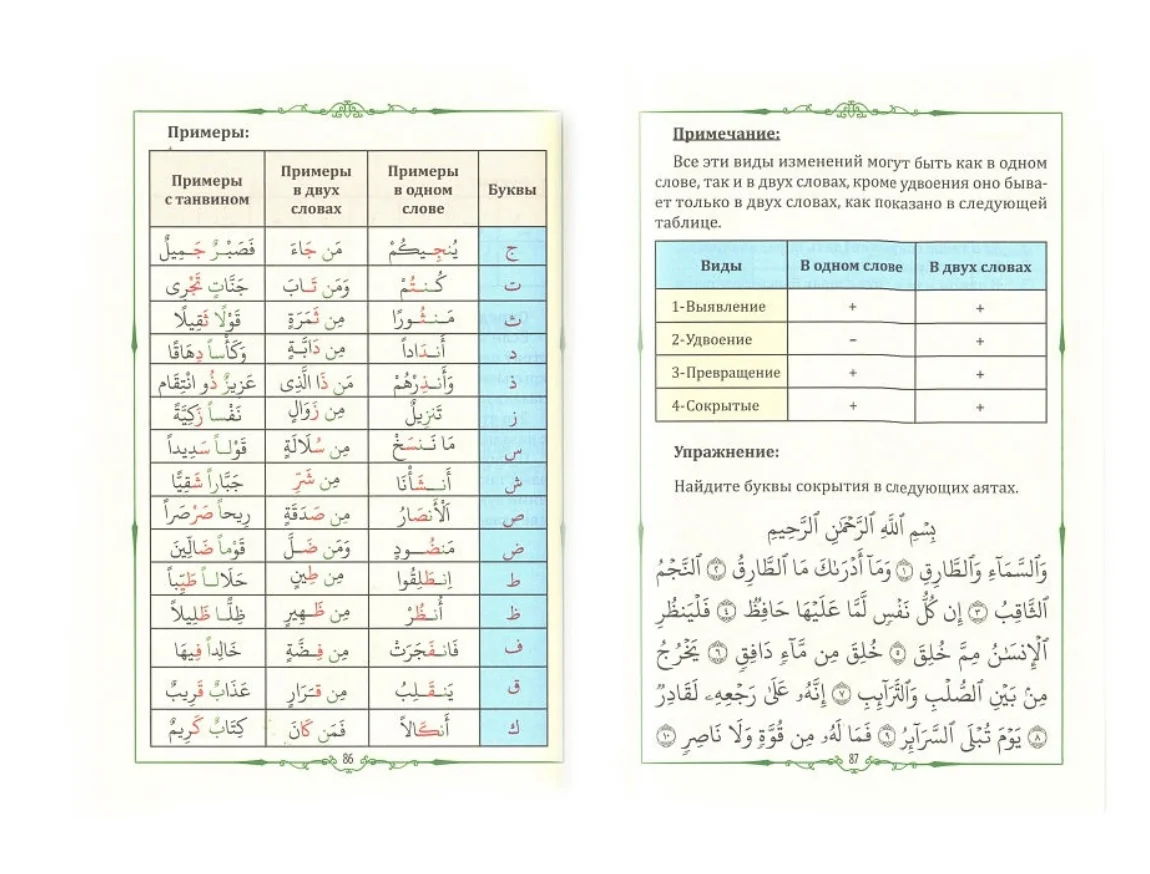 Примеры:
Примеры с танвином
Примеры в двух словах
Примеры в одном слове
Буквы
فَصَبْرٌ جَمِيلٌ مَن جَاءَ يُنجِيكُمْ ج
جَنَّاتٍ تَجْرِى وَمَن تَابَ كُنتُمْ ت
قَوْلًا ثَقِيلًا مِن ثَمَرَةٍ مَنثُورًا ث
وَكَأْساً دِهَاقًا مِن دَابَّةٍ أَندَاداً د
عَزِيزٌ ذُو انْتِقَام مَن ذَا الَّذِى وَأَنذِرْهُمْ ذ
نَفْساً زَكِيَّةً مِن زَوَالٍ تَنزِيلٌ ز
قَوْلاً سَدِيداً مِن سُلَالَةٍ مَا نَنسَخْ س
جَبَّاراً شَقِيًّا مِن شَرِّ أَنشَأْنَا ش
رِيحاً صَرْصَراً مِن صَدَقَةٍ الْأَنصَارُ ص
قَوْماً ضَالِّينَ وَمَن ضَلَّ مَنضُودٍ ض
حَلَالاً طَيِّباً مِن طِينٍ اِنطَلِقُوا ط
ظِلًّا ظَلِيلاً مِن ظَهِيرٍ أُنظُرْ ظ
خَالِداً فِيهَا مِن فِضَّةٍ فَانفَجَرَتْ ف
عَذَابٌ قَرِيبٌ مِن قَرَارٍ يَنقَلِبُ ق
كِتَابٌ كَرِيمٌ فَمَن كَانَ أَنكَالاً ك
86
Примечание:
Все эти виды изменений могут быть как в одном
слове, так и в двух словах, кроме удвоения оно быва-
ет только в двух словах, как показано в следующей
таблице.
Виды В одном слове В двух словах
1-Выявление + +
2-Удвоение – +
3-Превращение + +
4-Сокрытые + +
Упражнение:
Найдите буквы сокрытия в следующих аятах.
بِسْمِ ٱللَّهِ ٱلرَّحْمَٰنِ ٱلرَّحِيمِ
وَٱلسَّمَآءِ وَٱلطَّارِقِ ۝١ وَمَآ أَدْرَىٰكَ مَا ٱلطَّارِقُ ۝٢ ٱلنَّجْمُ
ٱلثَّاقِبُ ۝٣ إِن كُلُّ نَفْسٍ لَّمَّا عَلَيْهَا حَافِظٌ ۝٤ فَلْيَنظُرِ
ٱلْإِنسَٰنُ مِمَّ خُلِقَ ۝٥ خُلِقَ مِن مَّآءٍ دَافِقٍ ۝٦ يَخْرُجُ
مِنۢ بَيْنِ ٱلصُّلْبِ وَٱلتَّرَآئِبِ ۝٧ إِنَّهُۥ عَلَىٰ رَجْعِهِۦ لَقَادِرٌ
۝٨ يَوْمَ تُبْلَى ٱلسَّرَآئِرُ ۝٩ فَمَا لَهُۥ مِن قُوَّةٍ وَلَا نَاصِرٍ ۝١٠
87